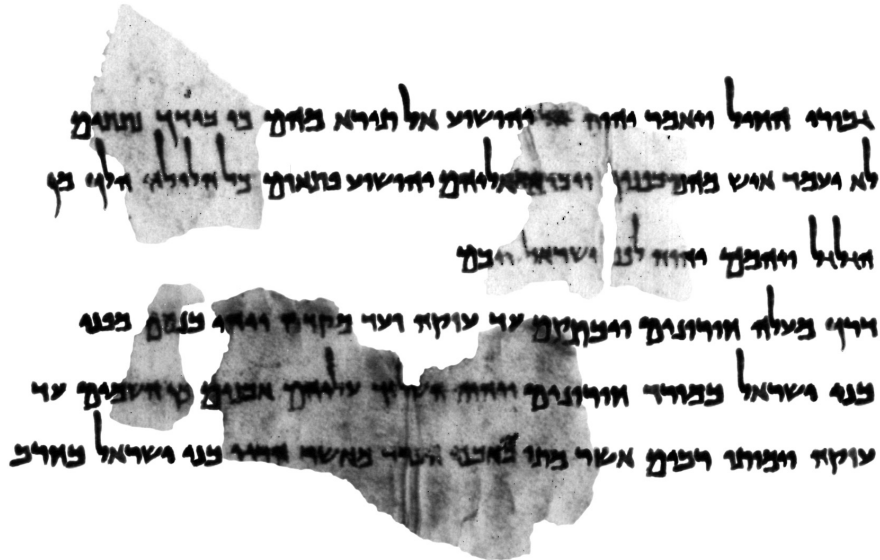 גבורי החיל ויאמר יהוה אל יהושוע אל תירא מהם כי בידך נתתים
לא יעמד איש מהם בפניך ויבוא אליהם יהושוע פתאום כל הלילה הלך מן
הגלגל ויהמם יהוה לפני ישראל ויכם
דרך מעלה חורונים עד עזקה ועד מקדה ויהי בנסם מפני
בני ישראל במורד חורונים ויהוה השליך עליהם אבנים מן השמים עד
עזקה וימותו רבים אשר מתו באבני הברד מאשר הרגו בני ישראל בחרב